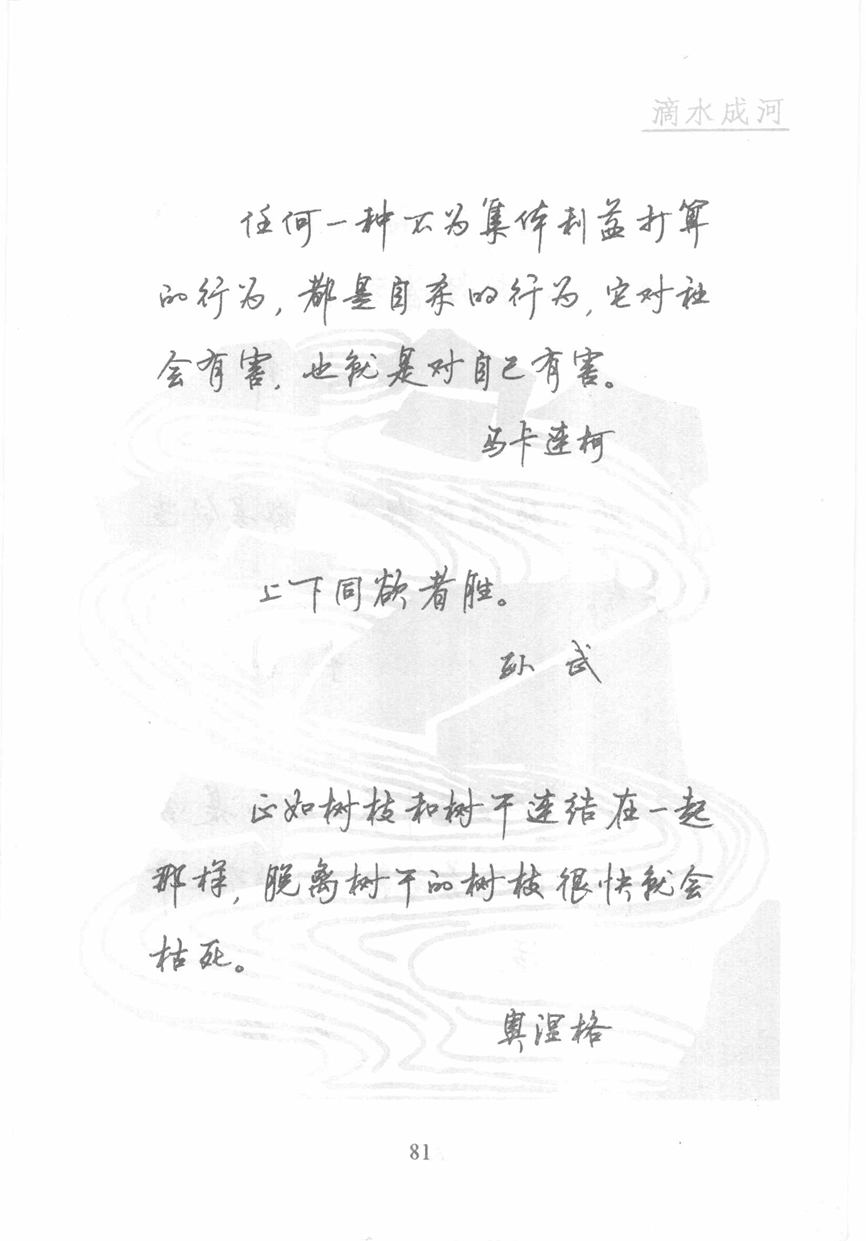 滴水成河
任何一种不为集体利益打算
的行为，都是自杀的行为，它对社
会有害，也就是对自己有害。
马卡连柯
上下同欲者胜。
孙 武
正如树枝和树干连结在一起
那样，脱离树干的树枝很快就会
枯死。
奥涅格
81